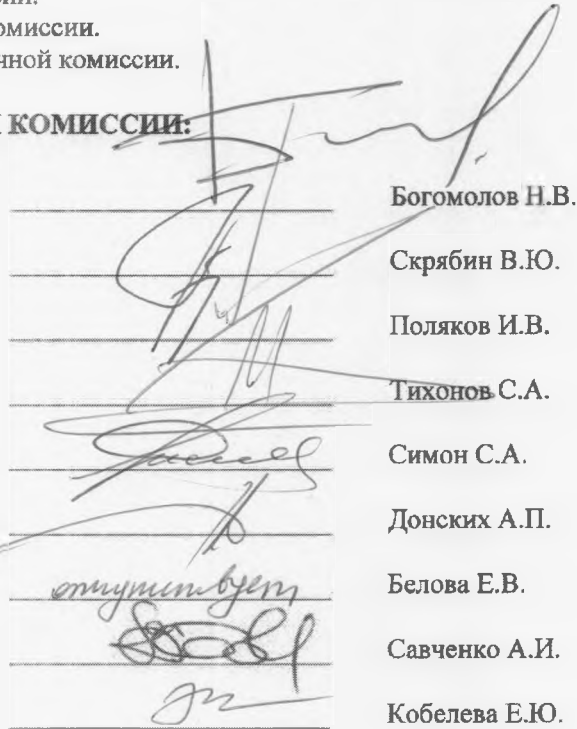 омиссии.
нной комиссии.
КОМИССИИ:
Богомолов Н.В.
Скрябин В.Ю.
Поляков И.В.
Тихонов С.А.
Симон С.А.
Донских А.П.
отсутствует Белова Е.В.
Савченко А.И.
Кобелева Е.Ю.